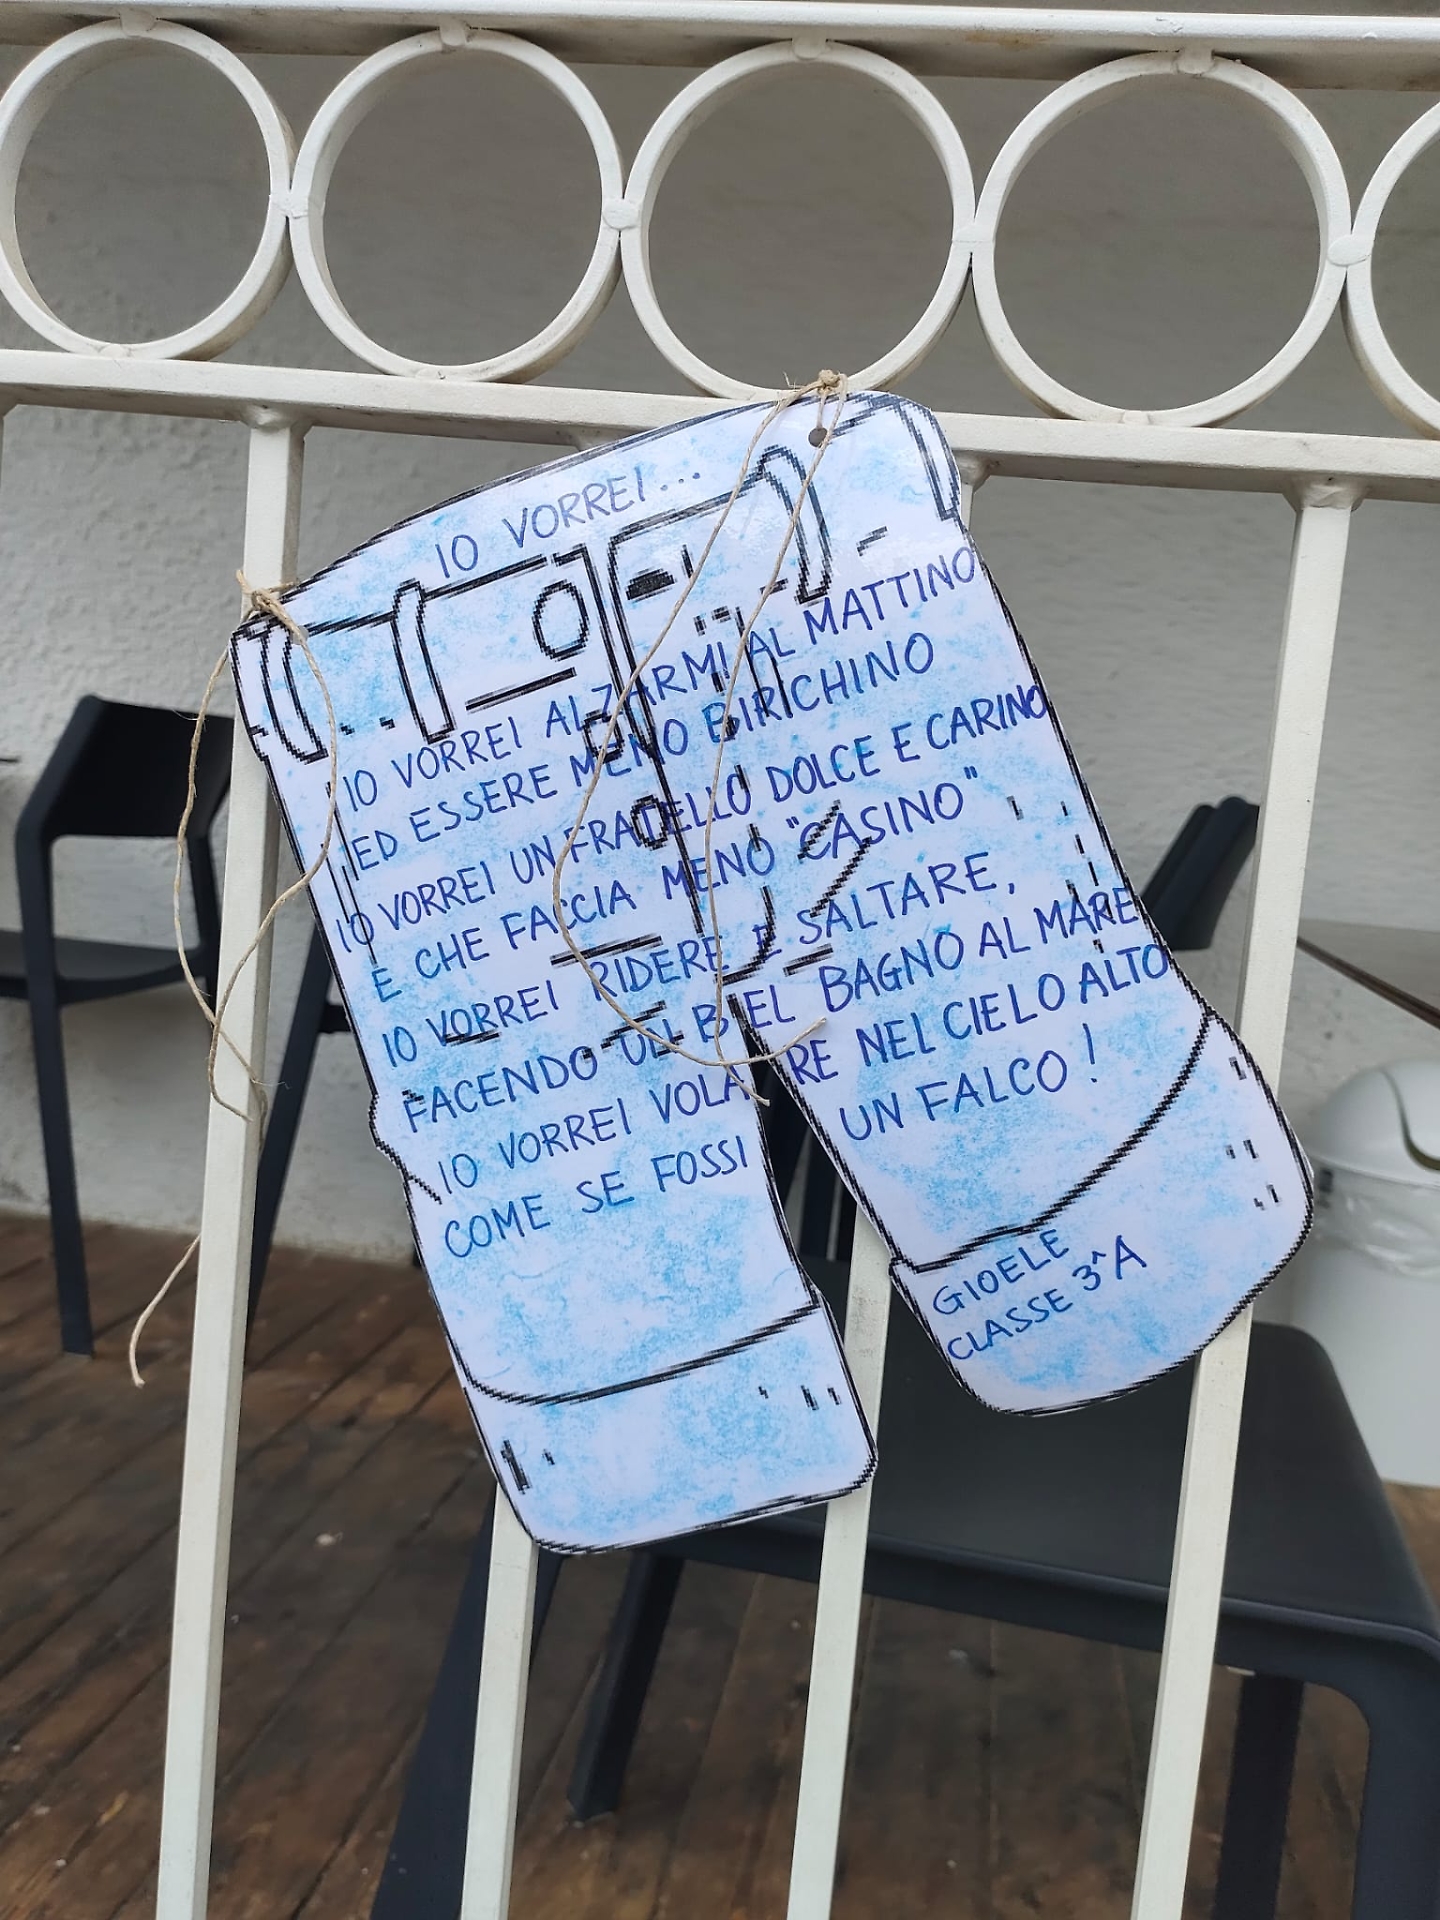 IO VORREI...
IO VORREI ALZARMI AL MATTINO
ED ESSERE MENO BIRICHINO
IO VORREI UN FRATELLO DOLCE E CARINO
E CHE FACCIA MENO "CASINO"
IO VORREI RIDERE E SALTARE,
FACENDO UN BEL BAGNO AL MARE
IO VORREI VOLARE NEL CIELO ALTO
COME SE FOSSI UN FALCO!
GIOELE
CLASSE 3^A